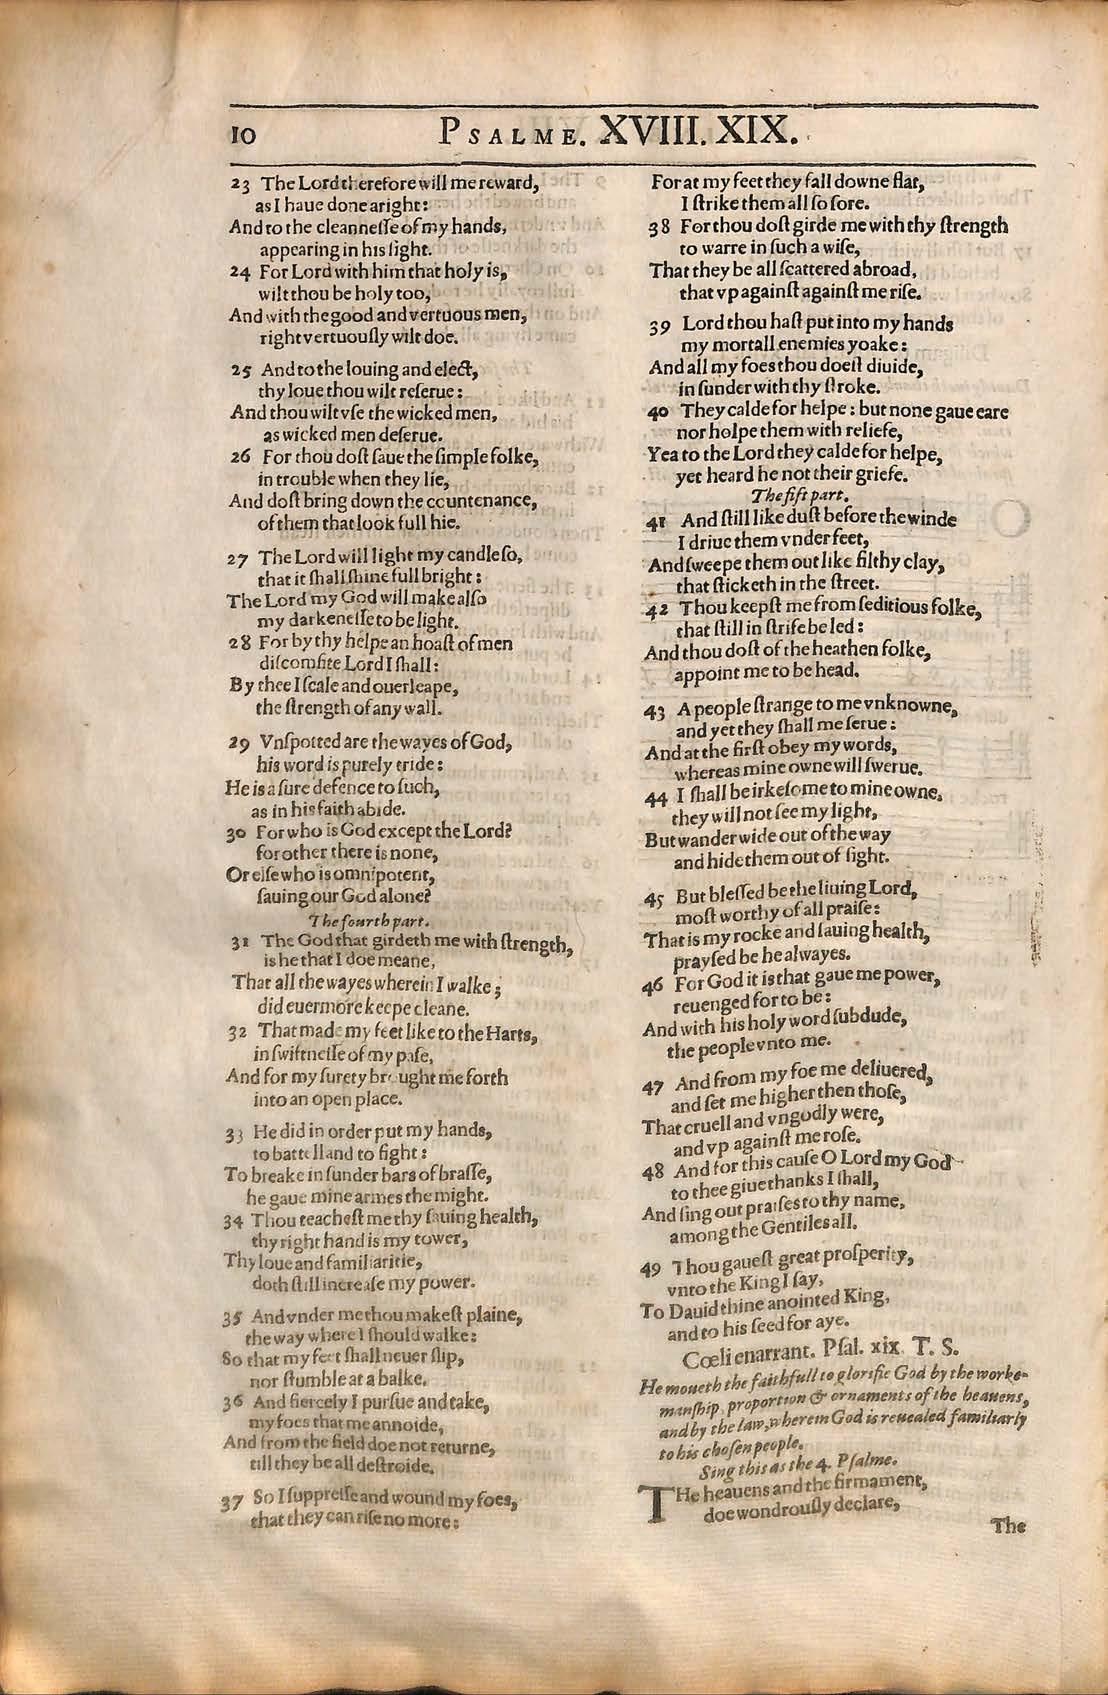 10
PSALME. XVIII. XIX.
23 The Lord therefore will me reward,
as I haue done aright:
And to the cleannesse of my hands,
appearing in his sight.
24 For Lord with him that holy is,
wilt thou be holy too,
And with the good and vertuous men,
right vertuously wilt doe.
25 And to the louing and elect,
thy loue thou wilt reserue:
And thou wilt vse the wicked men,
as wicked men deserue.
26 For thou dost saue the simple folke,
in trouble when they lie,
And dost bring down the countenance,
of them that look full hie.
27 The Lord will light my candle so,
that it shall shine full bright:
The Lord my God will make also
my darkenesse to be light.
28 For by thy helpe an hoast of men
discomfite Lord I shall:
By thee I scale and ouerleape,
the strength of any wall.
29 Vnspotted are the wayes of God,
his word is purely tride:
He is a sure defence to such,
as in his faith abide.
30 For who is God except the Lord?
for other there is none,
Or else who is omnipotent,
sauing our God alone?
The fourth part.
31 The God that girdeth me with strength,
is he that I doe meane,
That all the wayes wherein I walke;
did euermore keepe cleane.
32 That made my feet like to the Harts,
in swiftnesse of my pase,
And for my surety brought me forth
into an open place.
33 He did in order put my hands,
to battell and to fight:
To breake in sunder bars of brasse,
he gaue mine armes the might.
34 Thou teachest me thy sauing health,
thy right hand is my tower,
Thy loue and familiaritie,
doth still increase my power.
35 And vnder me thou makest plaine,
the way where I should walke:
So that my feet shall neuer slip,
nor stumble at a balke.
36 And fiercely I pursue and take,
my foes that me annoide,
And from the field doe not returne,
till they be all destroide.
37 So I suppresse and wound my foes,
that they can rise no more:
For at my feet they fall downe flat,
I strike them all so sore.
38 For thou dost girde me with thy strength
to warre in such a wise,
That they be all scattered abroad,
that vp against against me rise.
39 Lord thou hast put into my hands
my mortall enemies yoake:
And all my foes thou doest diuide,
in sunder with thy stroke.
40 They calde for helpe: but none gaue eare
nor holpe them with reliefe,
Yea to the Lord they calde for helpe,
yet heard he not their griefe.
The fift part.
41 And still like dust before the winde
I driue them vnder feet,
And sweepe them out like filthy clay,
that sticketh in the street.
42 Thou keepst me from seditious folke,
that still in strife be led:
And thou dost of the heathen folke,
appoint me to be head.
43 A people strange to me vnknowne,
and yet they shall me serue:
And at the first obey my words,
whereas mine owne will swerue.
44 I shall be irkesome to mine owne,
they will not see my light,
But wander wide out of the way
and hide them out of sight.
45 But blessed be the liuing Lord,
most worthy of all praise:
That is my rocke and sauing health,
praysed be he alwayes.
46 For God it is that gaue me power,
reuenged for to be:
And with his holy word subdude,
the people vnto me.
47 And from my foe me deliuered,
and set me higher then those,
That cruell and vngodly were,
and vp against me rose.
48 And for this cause O Lord my God
to thee giue thanks I shall,
And sing out praises to thy name,
among the Gentiles all.
49 Thou gauest great prosperity,
vnto the King I say,
To Dauid thine anointed King,
and to his seed for aye.
Cœli enarrant. Psal. xix. T. S.
He moueth the faithfull to glorifie God by the worke-
manship, proportion & ornaments of the heauens,
and by the law, wherein God is reuealed familiarly
to his chosen people.
Sing this as the 4. Psalme.
THe heauens and the firmament,
doe wondrously declare,
The